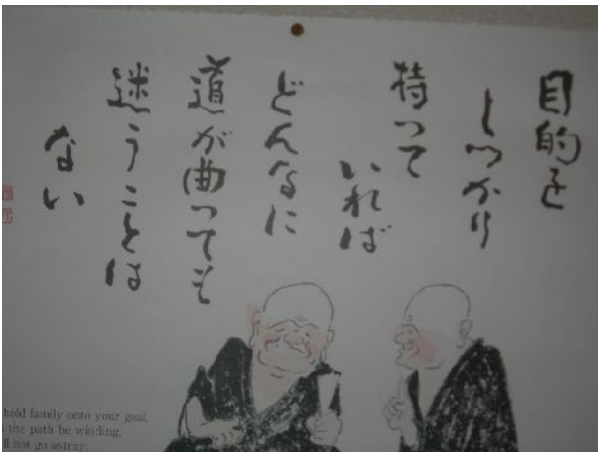 目的を
しっかり
持って
いれば
どんなに
道が曲っても
迷うことは
ない
hold family onto your goal,
the path be winding,
ll not go astray.